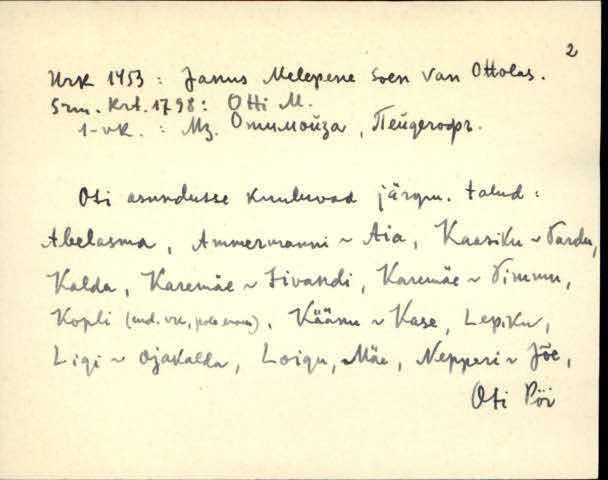 2
Urk 1453 : Janus Melepene soen van Ottolas.
Srm. Krt. 1798: Otti M.
1-vk. : Мз. Отимойза, Пейдегофъ.
Oti asundusse kuuluvad järgm. talud :
Abelasma, Ammermanni ~ Aia, Kaasiku ~ Pardu,
Kalda, Karemäe ~ Sivandi, Karemäe ~ Timmu,
Kopli (end. vk., pole enam), Käänu ~ Kase, Lepiku,
Ligi ~ Ojakalda, Loigu, Mäe, Nepperi ~ Jõe,
Oti Pöi